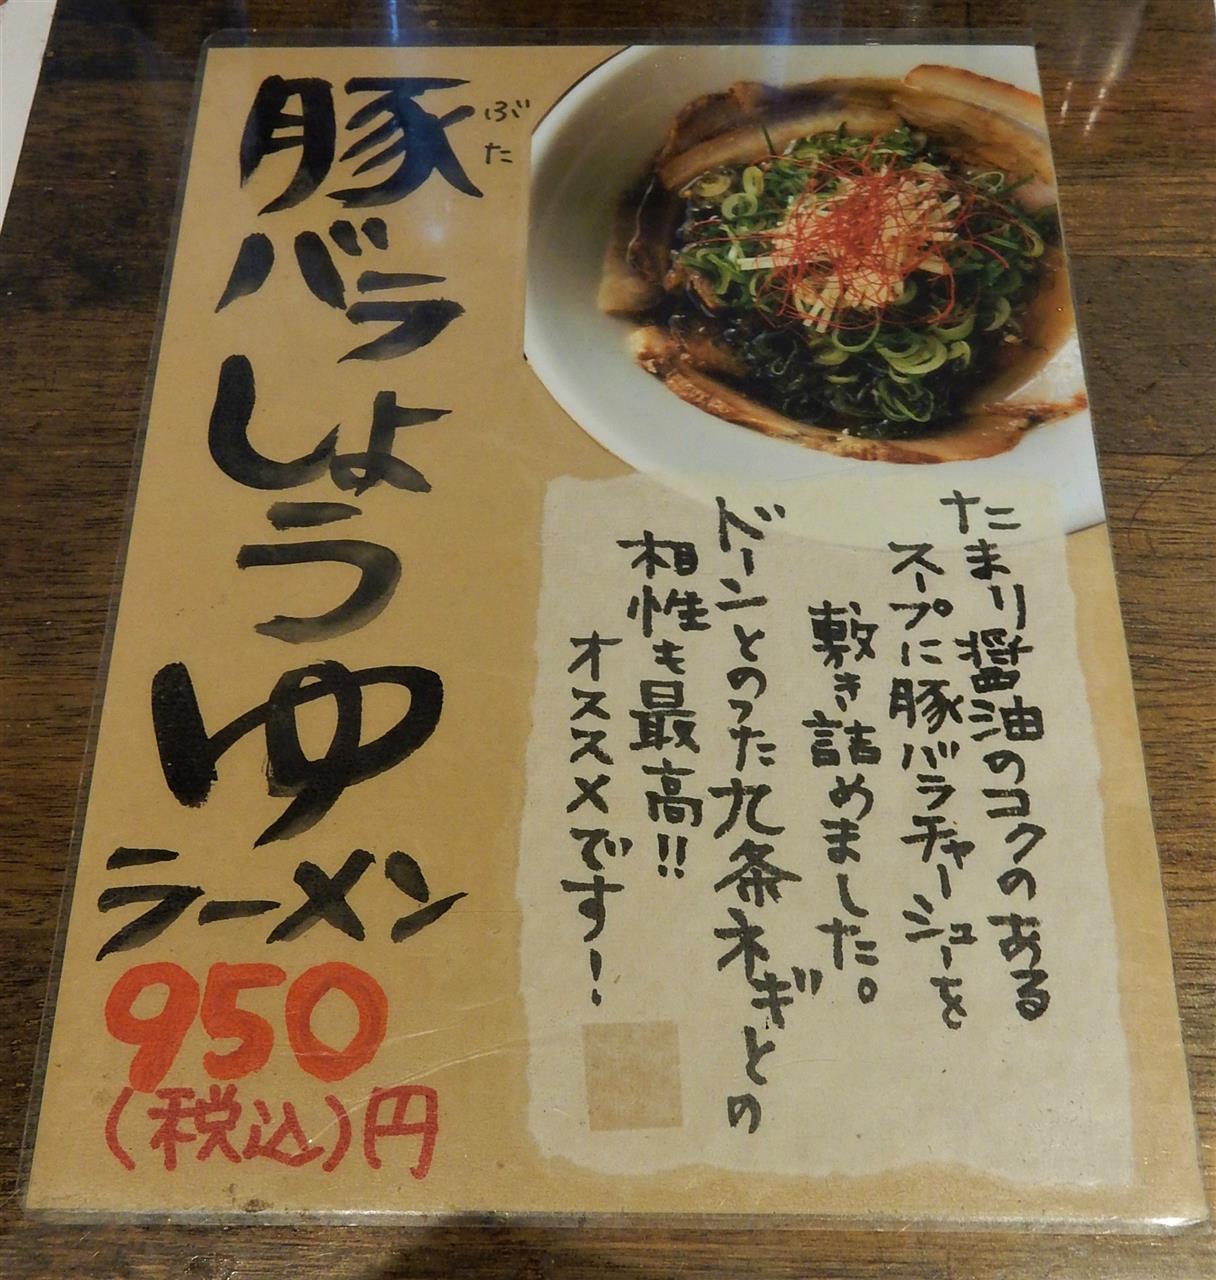 豚バラ
ぶた
しょうゆ
ラーメン
950
(税込)円
たまり醤油のコクのある
スープに豚バラチャーシューを
敷き詰めました。
ドーンとのった九条ネギとの
相性も最高!!
オススメです!